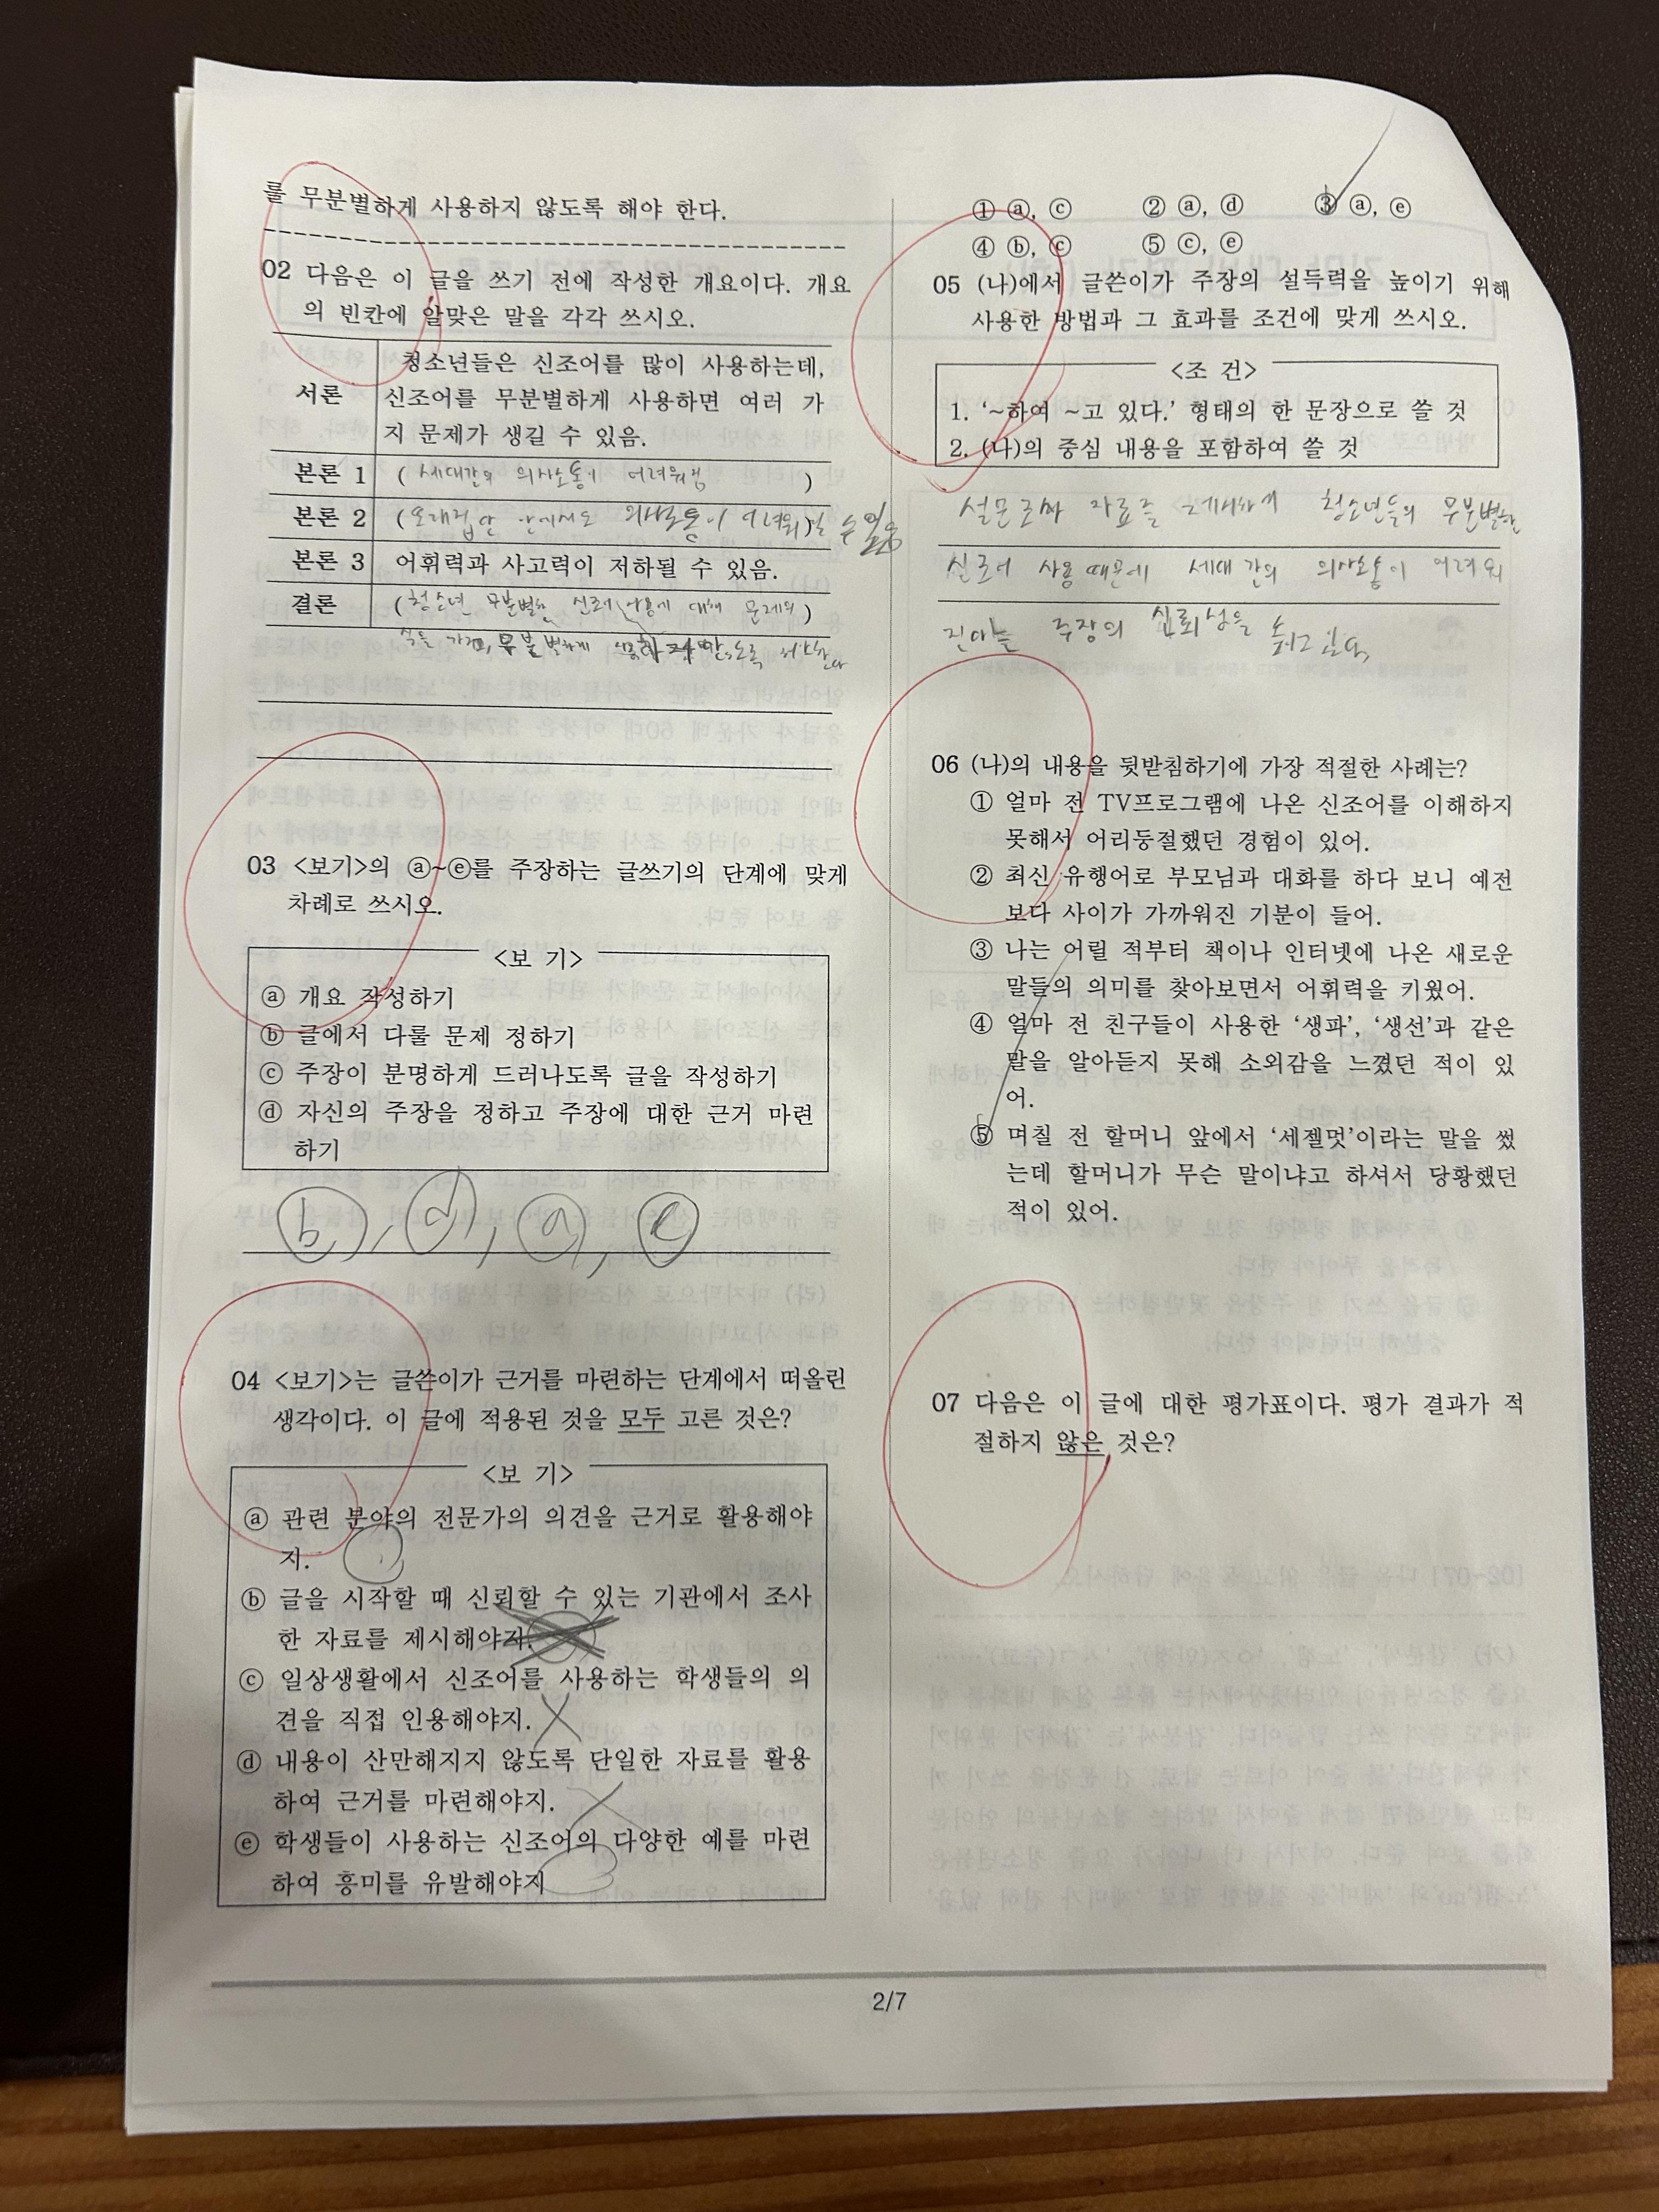 를 무분별하게 사용하지 않도록 해야 한다.
02 다음은 이 글을 쓰기 전에 작성한 개요이다. 개요
의 빈칸에 알맞은 말을 각각 쓰시오.
서론
청소년들은 신조어를 많이 사용하는데,
신조어를 무분별하게 사용하면 여러 가
지 문제가 생길 수 있음.
본론 1 ( 세대간의 의사소통이 어려워짐 )
본론 2 (또래집단 안에서도 의사소통이 어려워)질 수 있음
본론 3 어휘력과 사고력이 저하될 수 있음.
결론 (청소년 무분별한 신조어 사용에 대해 문제의)
식을 가지고, 무분별하게 해야한다
03 <보기>의 ⓐ~ⓔ를 주장하는 글쓰기의 단계에 맞게
차례로 쓰시오.
<보 기>
ⓐ 개요 작성하기
ⓑ 글에서 다룰 문제 정하기
ⓒ 주장이 분명하게 드러나도록 글을 작성하기
ⓓ 자신의 주장을 정하고 주장에 대한 근거 마련
하기
ⓑ, ⓓ, ⓐ, ⓒ
04 <보기>는 글쓴이가 근거를 마련하는 단계에서 떠올린
생각이다. 이 글에 적용된 것을 모두 고른 것은?
<보 기>
ⓐ 관련 분야의 전문가의 의견을 근거로 활용해야
지.
ⓑ 글을 시작할 때 신뢰할 수 있는 기관에서 조사
한 자료를 제시해야지.
ⓒ 일상생활에서 신조어를 사용하는 학생들의 의
견을 직접 인용해야지.
ⓓ 내용이 산만해지지 않도록 단일한 자료를 활용
하여 근거를 마련해야지.
ⓔ 학생들이 사용하는 신조어의 다양한 예를 마련
하여 흥미를 유발해야지
① ⓐ, ⓒ ② ⓐ, ⓓ ③ ⓐ, ⓔ
④ ⓑ, ⓒ ⑤ ⓒ, ⓔ
05 (나)에서 글쓴이가 주장의 설득력을 높이기 위해
사용한 방법과 그 효과를 조건에 맞게 쓰시오.
<조 건>
1. ‘~하여 ~고 있다.’ 형태의 한 문장으로 쓸 것
2. (나)의 중심 내용을 포함하여 쓸 것
설문조사 자료를 제시하여 청소년들의 무분별한
신조어 사용 때문에 세대 간의 의사소통이 어려워
진다는 주장의 신뢰성을 높이고 있다.
06 (나)의 내용을 뒷받침하기에 가장 적절한 사례는?
① 얼마 전 TV프로그램에 나온 신조어를 이해하지
못해서 어리둥절했던 경험이 있어.
② 최신 유행어로 부모님과 대화를 하다 보니 예전
보다 사이가 가까워진 기분이 들어.
③ 나는 어릴 적부터 책이나 인터넷에 나온 새로운
말들의 의미를 찾아보면서 어휘력을 키웠어.
④ 얼마 전 친구들이 사용한 ‘생파’, ‘생선’과 같은
말을 알아듣지 못해 소외감을 느꼈던 적이 있
어.
⑤ 며칠 전 할머니 앞에서 ‘세젤멋’이라는 말을 썼
는데 할머니가 무슨 말이냐고 하셔서 당황했던
적이 있어.
07 다음은 이 글에 대한 평가표이다. 평가 결과가 적
절하지 않은 것은?
2/7